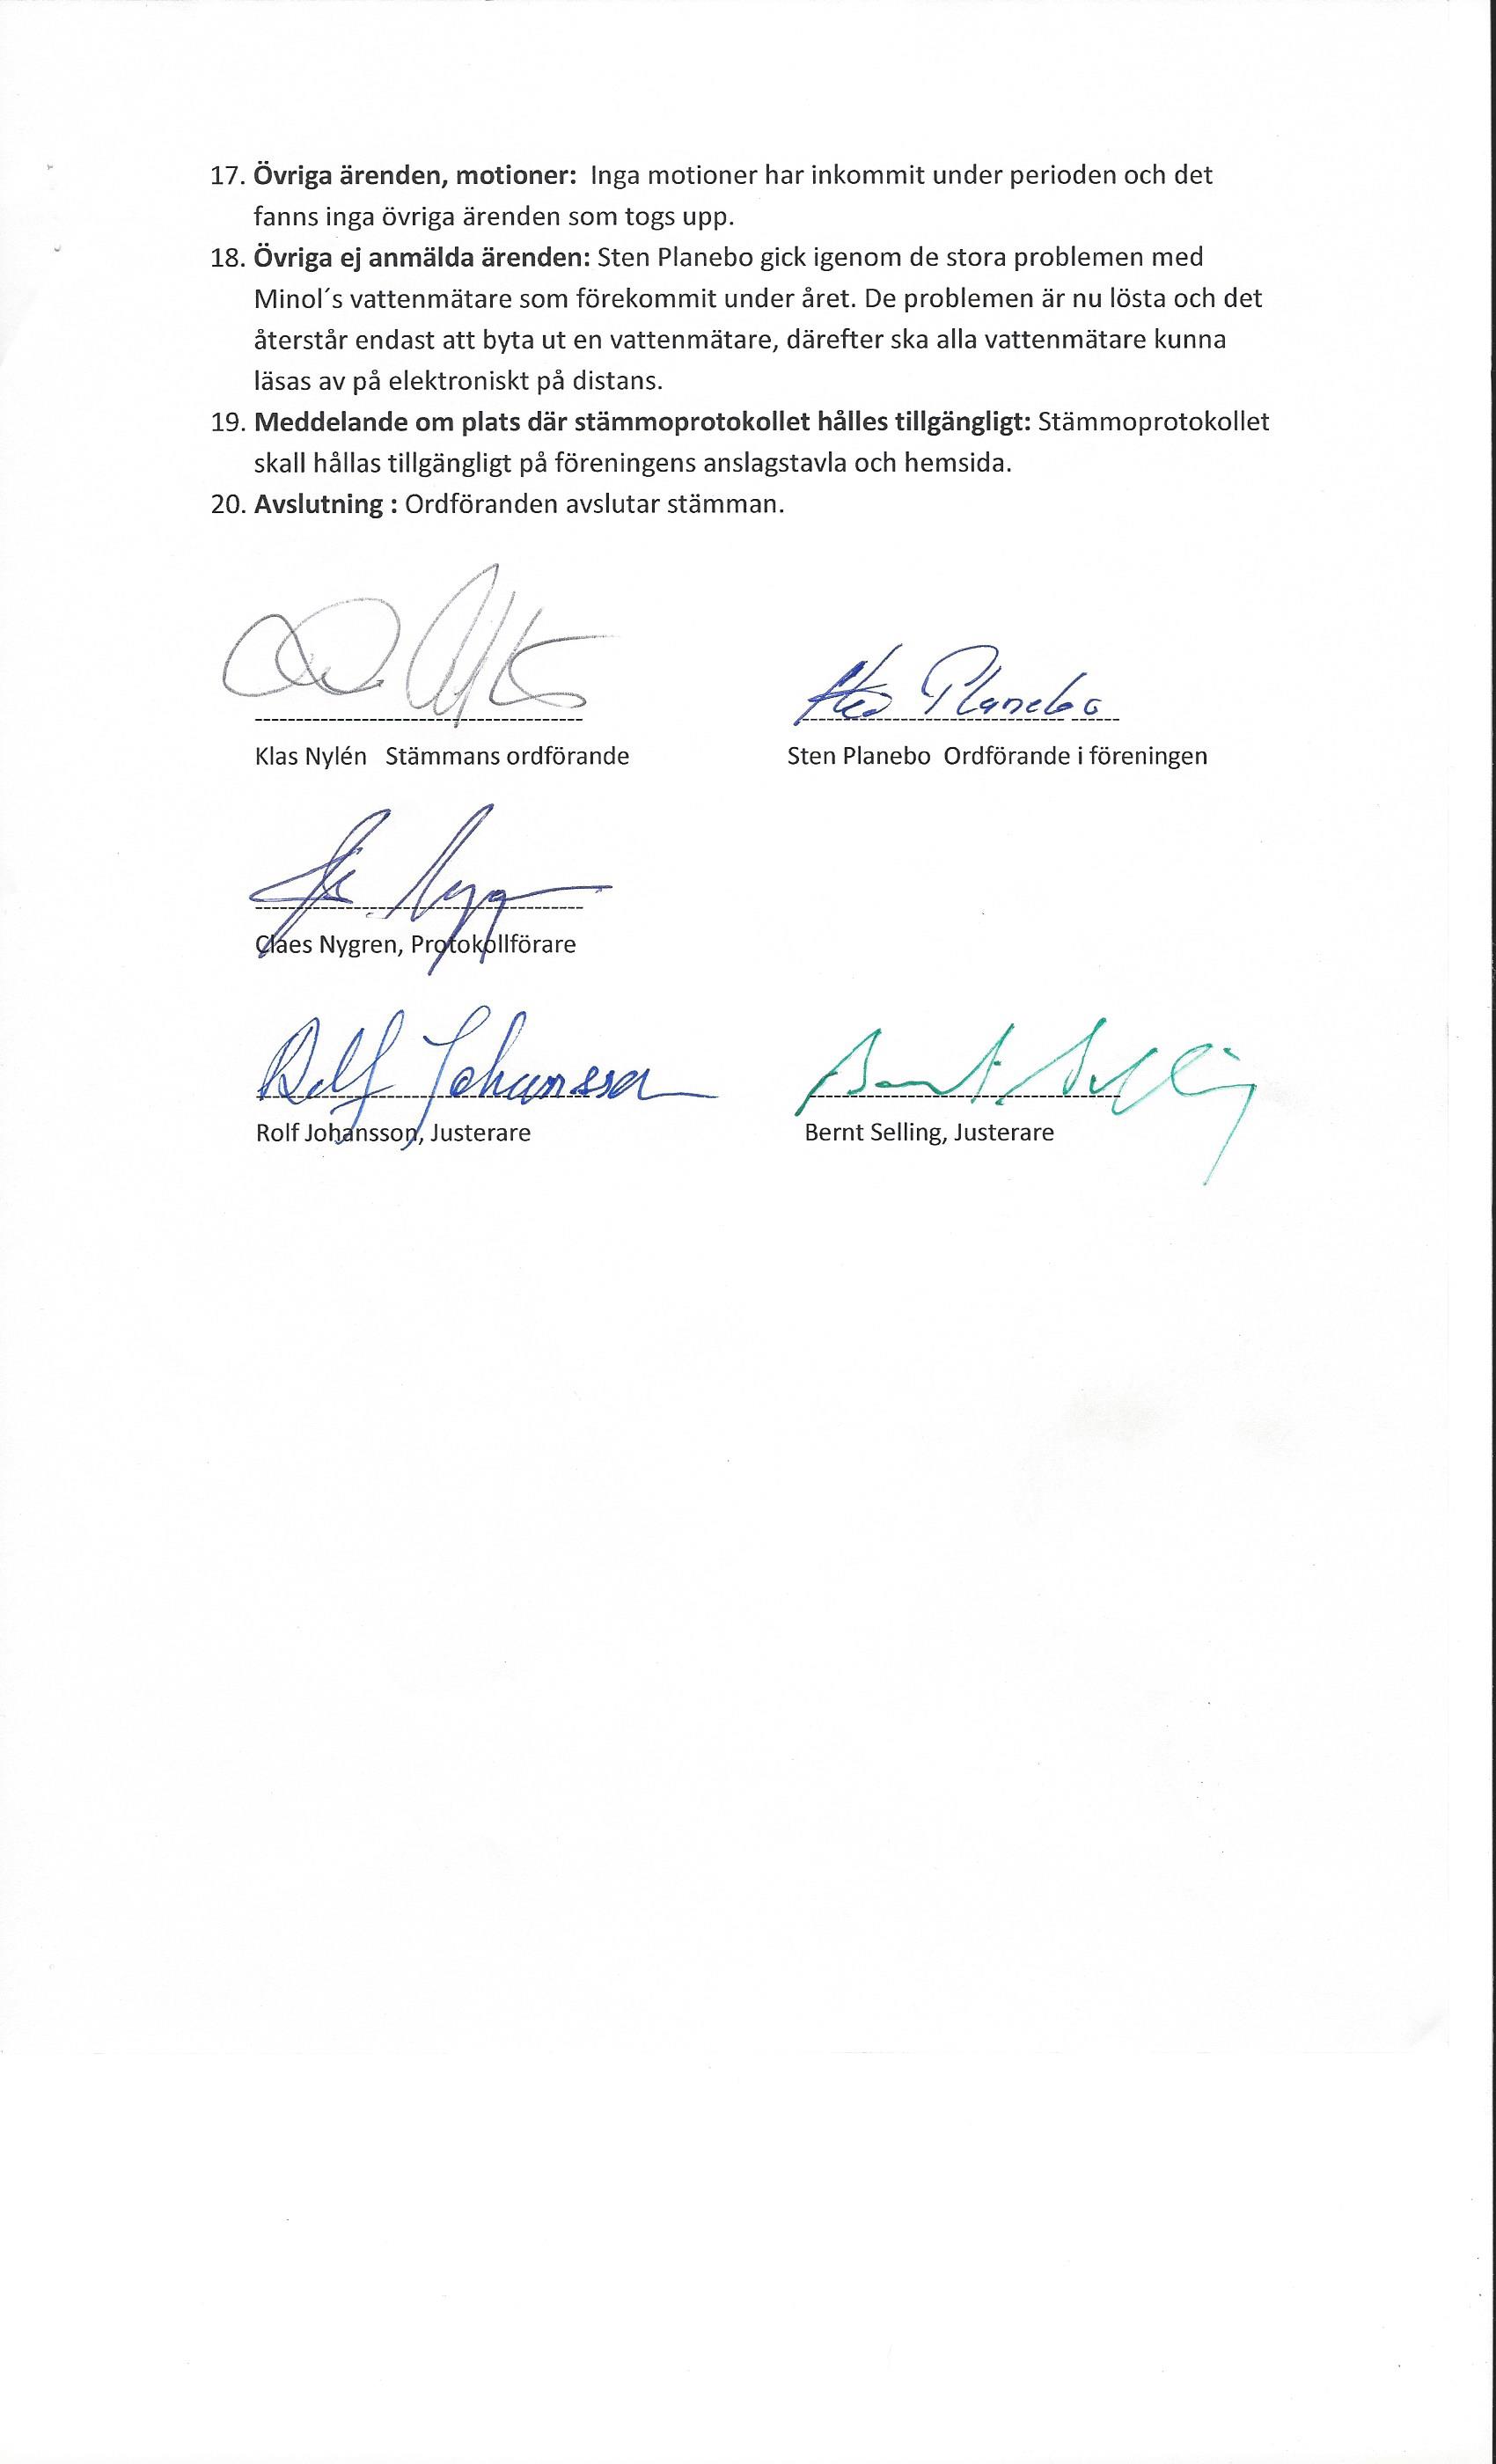 17. Övriga ärenden, motioner: Inga motioner har inkommit under perioden och det
fanns inga övriga ärenden som togs upp.
18. Övriga ej anmälda ärenden: Sten Planebo gick igenom de stora problemen med
Minol´s vattenmätare som förekommit under året. De problemen är nu lösta och det
återstår endast att byta ut en vattenmätare, därefter ska alla vattenmätare kunna
läsas av på elektroniskt på distans.
19. Meddelande om plats där stämmoprotokollet hålles tillgängligt: Stämmoprotokollet
skall hållas tillgängligt på föreningens anslagstavla och hemsida.
20. Avslutning : Ordföranden avslutar stämman.
Sten Planebo
Klas Nylén Stämmans ordförande
Sten Planebo Ordförande i föreningen
Claes Nygren, Protokollförare
Rolf Johansson
Bernt Selling
Rolf Johansson, Justerare
Bernt Selling, Justerare